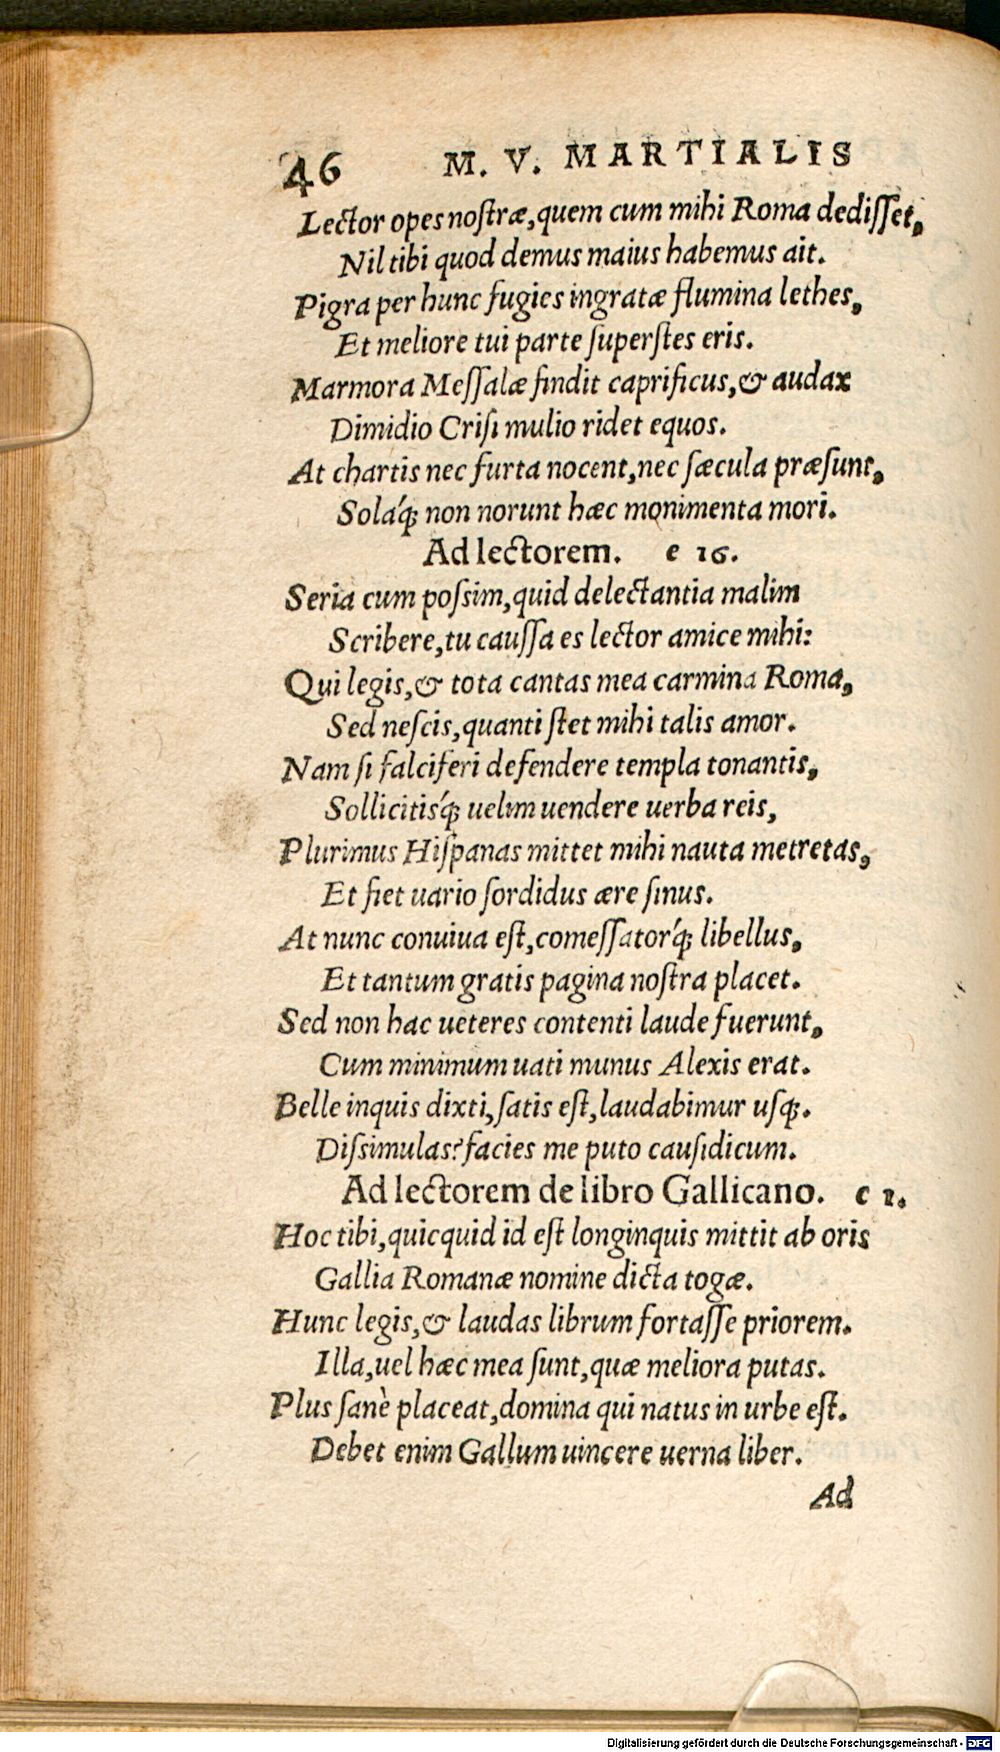 46 M. V. MARTIALIS
Lector opes nostræ,quem cum mihi Roma dedisset,
Nil tibi quod demus maius habemus ait.
Pigra per hunc fugies ingratæ flumina lethes,
Et meliore tui parte superstes eris.
Marmora Messalæ findit caprificus,& audax
Dimidio Crisi mulio ridet equos.
At chartis nec furta nocent,nec sæcula præsunt,
Soláq; non norunt hæc monimenta mori.
Ad lectorem. e 16.
Seria cum possim,quid delectantia malim
Scribere,tu caussa es lector amice mihi:
Qui legis,& tota cantas mea carmina Roma,
Sed nescis,quanti stet mihi talis amor.
Nam si falciferi defendere templa tonantis,
Sollicitisq́; uelim uendere uerba reis,
Plurimus Hispanas mittet mihi nauta metretas,
Et fiet uario sordidus ære sinus.
At nunc conuiua est,comessatorq́; libellus,
Et tantum gratis pagina nostra placet.
Sed non hac ueteres contenti laude fuerunt,
Cum minimum uati munus Alexis erat.
Belle inquis dixti,satis est,laudabimur usq;.
Dissimulas?facies me puto causidicum.
Ad lectorem de libro Gallicano. e 1.
Hoc tibi,quicquid id est longinquis mittit ab oris
Gallia Romanæ nomine dicta togæ.
Hunc legis,& laudas librum fortasse priorem.
Illa,uel hæc mea sunt,quæ meliora putas.
Plus sanè placeat,domina qui natus in urbe est.
Debet enim Gallum uincere uerna liber.
Ad
Digitalisierung gefördert durch die Deutsche Forschungsgemeinschaft - DFG